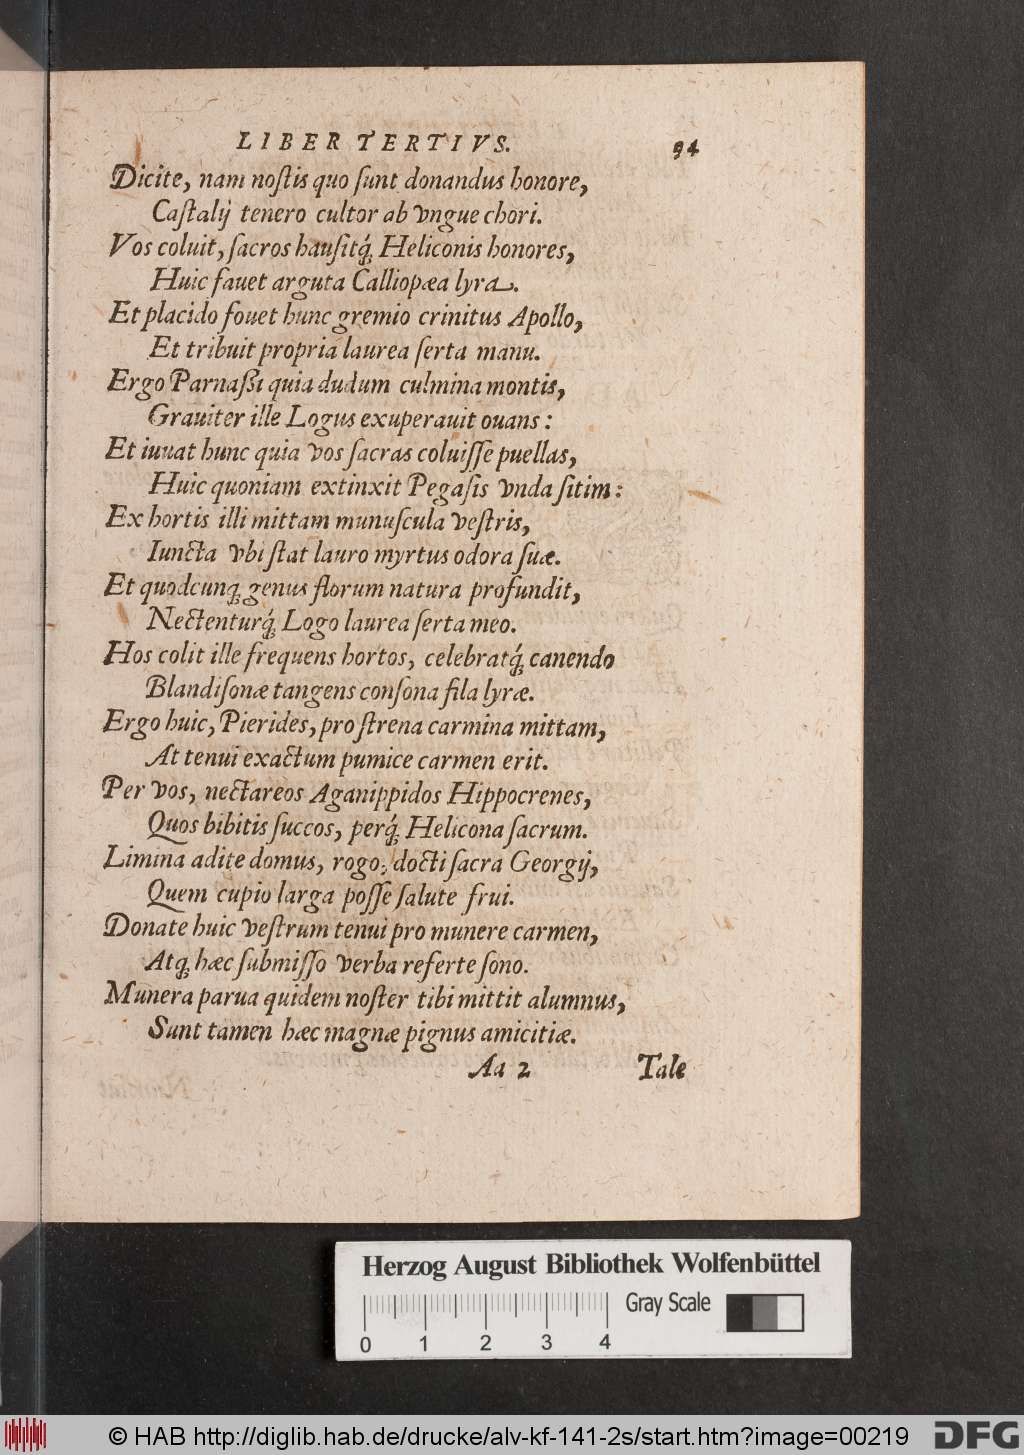 LIBER TERTIVS. 94
Dicite, nam noſtis quo ſunt donandus honore,
Caſtalij tenero cultor ab vngue chori.
Vos coluit, ſacros hauſitq́; Heliconis honores,
Huic fauet arguta Calliopæa lyra.
Et placido fouet hunc gremio crinitus Apollo,
Et tribuit propria laurea ſerta manu.
Ergo Parnaßi quia dudum culmina montis,
Grauiter ille Logus exuperauit ouans:
Et iuuat hunc quia vos ſacras coluiſſe puellas,
Huic quoniam extinxit Pegaſis vnda ſitim:
Ex hortis illi mittam munuſcula veſtris,
Iuncta vbi ſtat lauro myrtus odora ſuæ.
Et quodcunq; genus florum natura profundit,
Nectenturq́; Logo laurea ſerta meo.
Hos colit ille frequens hortos, celebratq́; canendo
Blandiſonæ tangens conſona fila lyræ.
Ergo huic, Pierides, pro ſtrena carmina mittam,
At tenui exactum pumice carmen erit.
Per vos, nectareos Aganippidos Hippocrenes,
Quos bibitis ſuccos, perq́; Helicona ſacrum.
Limina adite domus, rogo, docti ſacra Georgij,
Quem cupio larga poſſe ſalute frui.
Donate huic veſtrum tenui pro munere carmen,
Atq; hæc ſubmiſſo verba referte ſono.
Munera parua quidem noſter tibi mittit alumnus,
Sunt tamen hæc magnæ pignus amicitiæ.
Aa 2 Tale
Herzog August Bibliothek Wolfenbüttel
Gray Scale
0 1 2 3 4
© HAB http://diglib.hab.de/drucke/alv-kf-141-2s/start.htm?image=00219
DFG